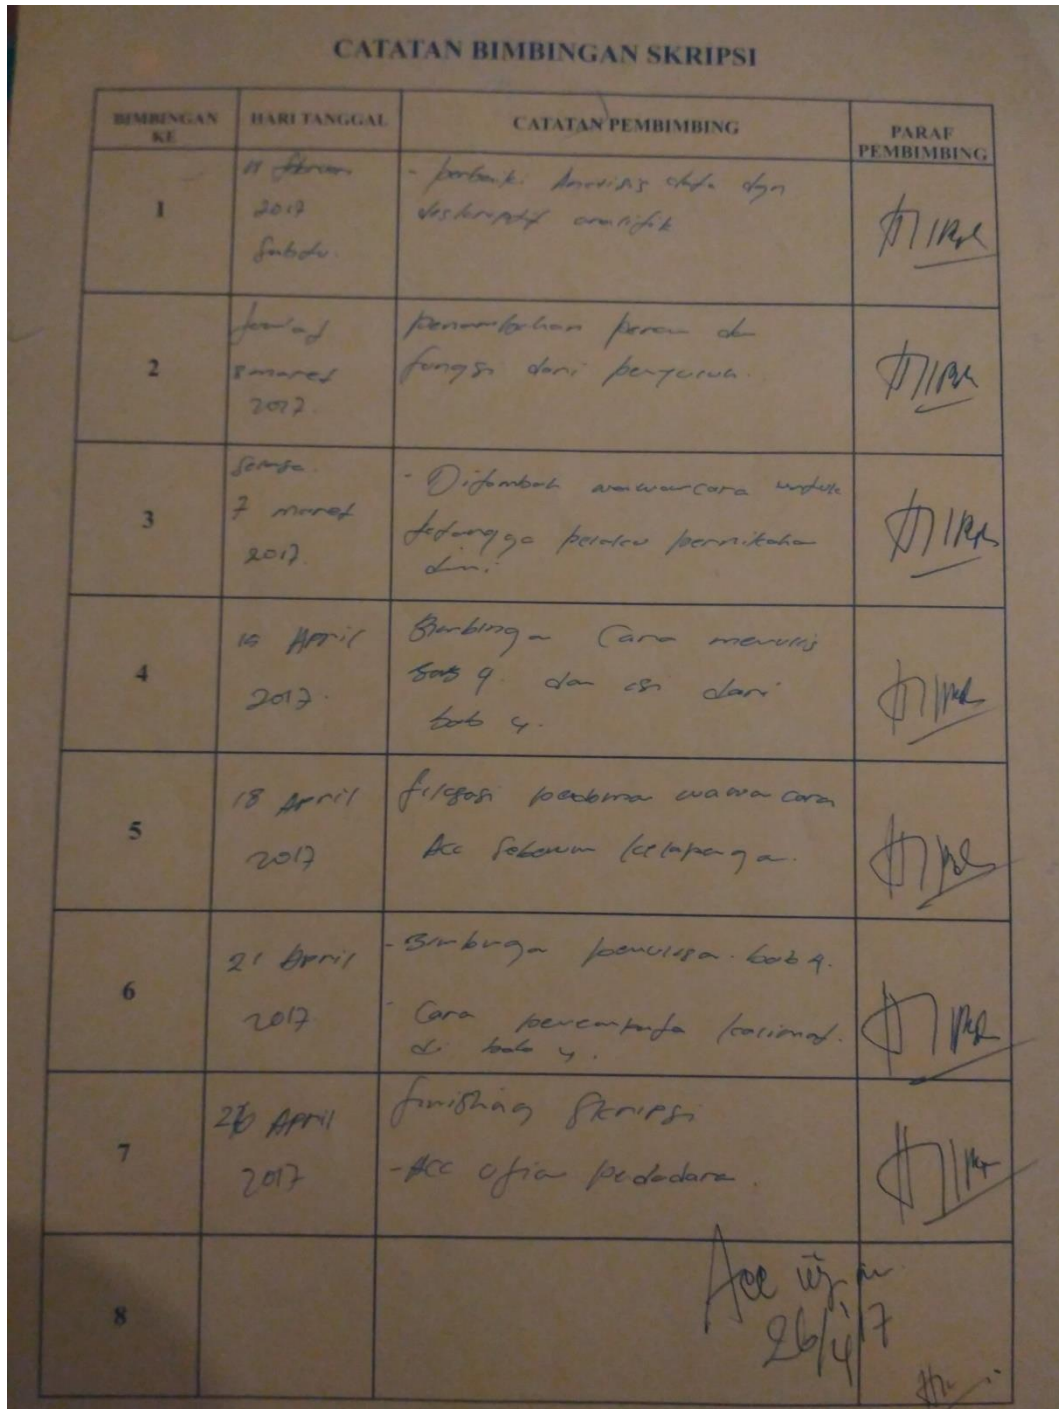 CATATAN BIMBINGAN SKRIPSI
BIMBINGAN KE
HARI TANGGAL
CATATAN PEMBIMBING
PARAF PEMBIMBING
1
11
2017
Sabtu.
- perbaiki Analisis data dgn
deskriptif analitik
2
8 maret
2017.
penambahan peran dan
fungsi dari
3
Selasa.
7 maret
2017.
- Ditambah wawancara untuk
tetangga pelaku pernikahan
dini
4
April
2017.
Bimbingan Cara menulis
bab 4. dan isi dari
bab 4.
5
18 April
2017
wawancara
Acc Sebelum
6
21 April
2017.
- Bimbingan penulisan bab 4.
- Cara kalimat.
di bab 4.
7
26 April
2017
finishing Skripsi
- Acc ujian
8
Acc ujian
26/4 17